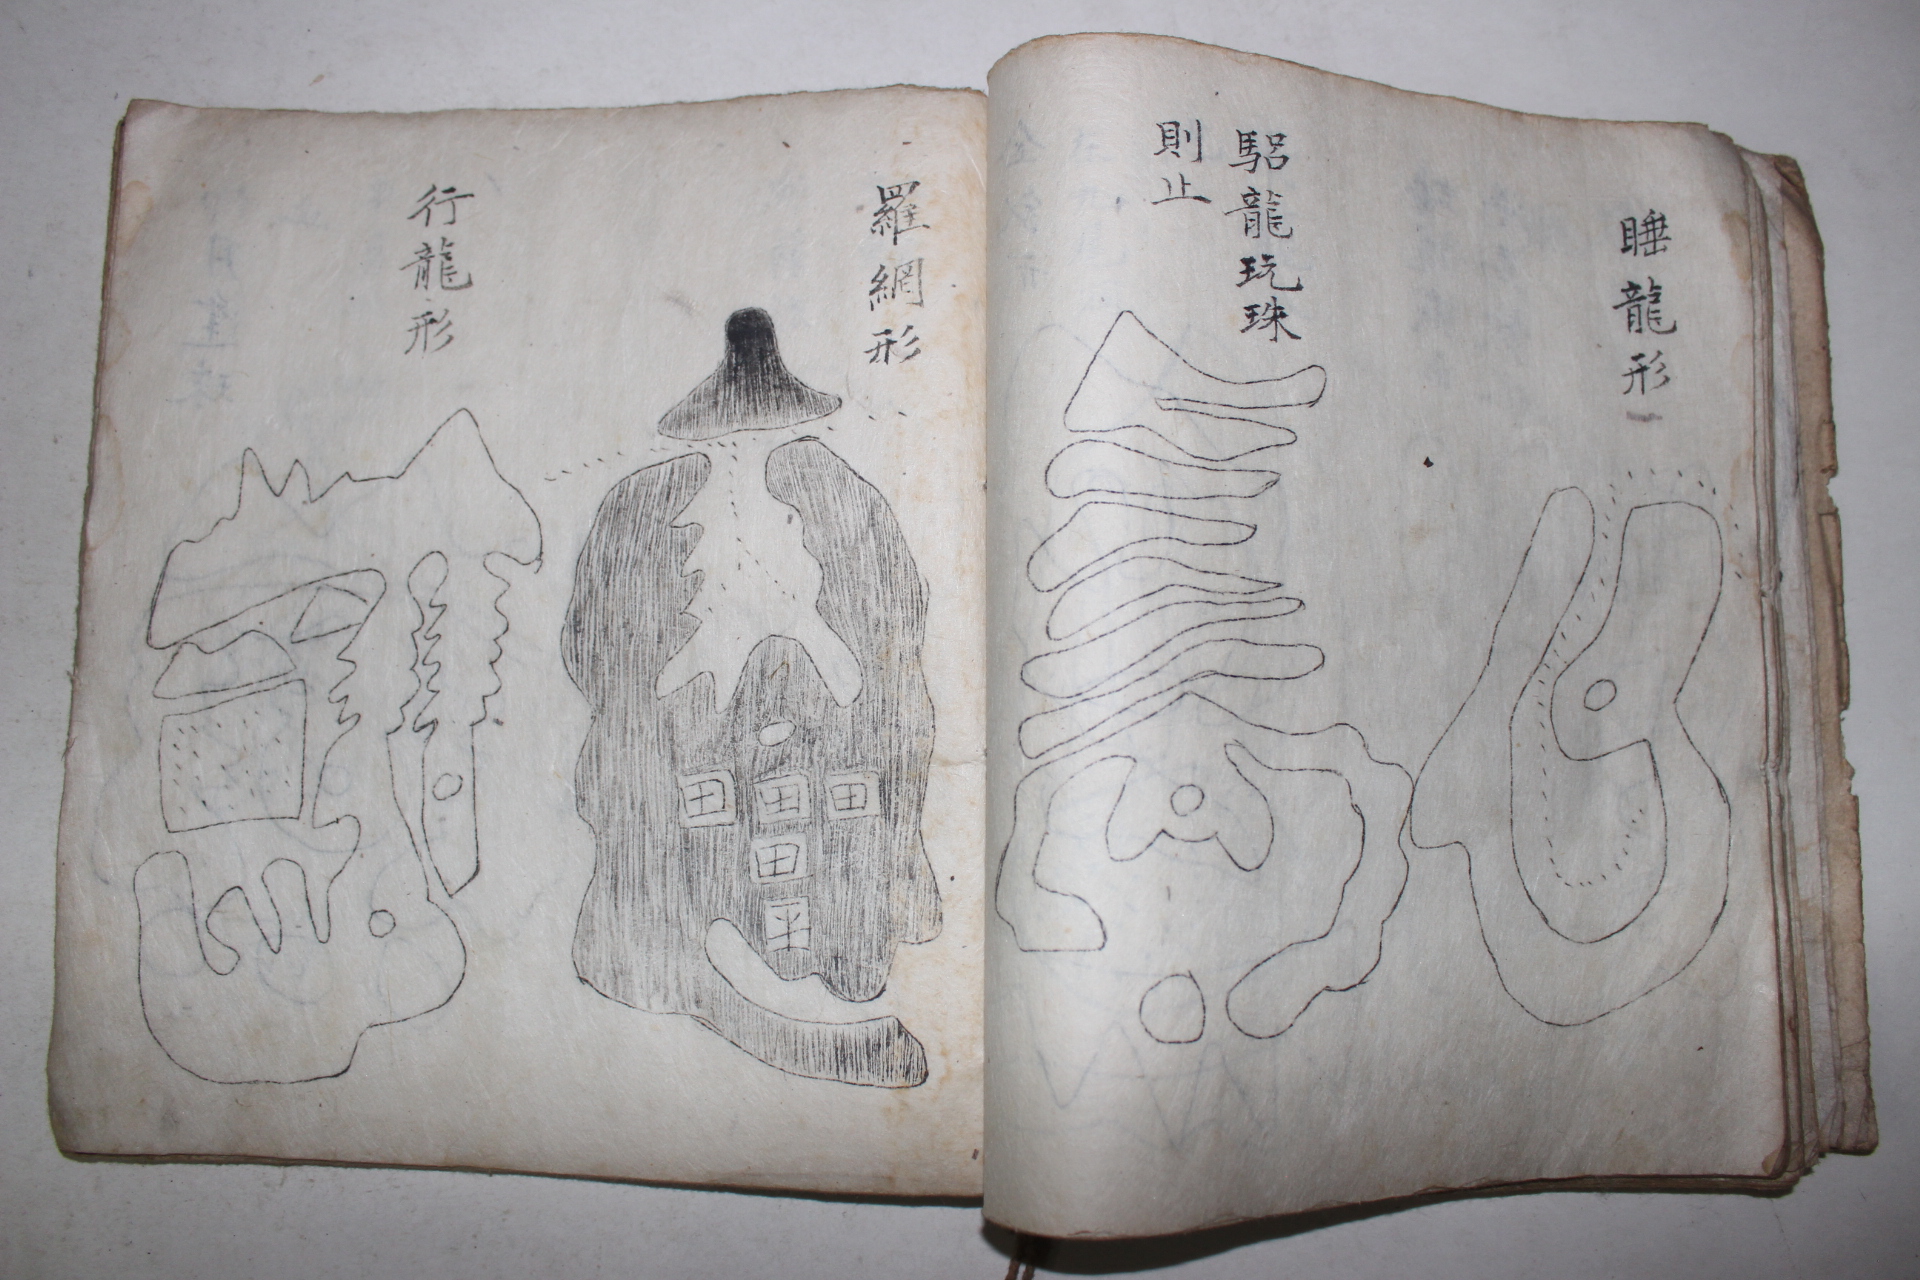 睡龍形
馹龍玩珠
則止
羅網形
田 田 田
田
平
行龍形